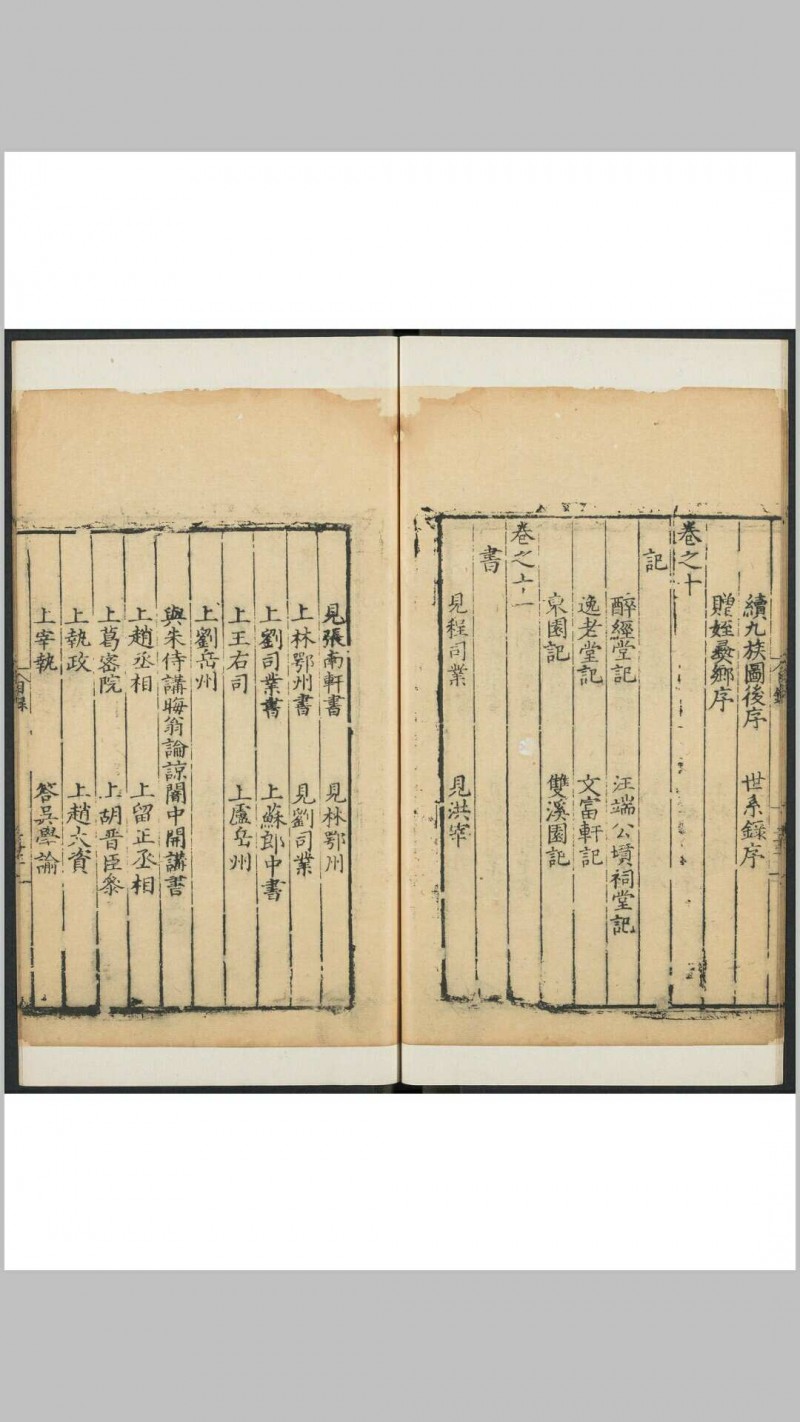 續九族圖後序　世系録序
贈姪夔鄉序
卷之十
記
醉經堂記　汪端公墳祠堂記
逸老堂記　文富軒記
東園記　雙溪園記
卷之十一
書
見程司業　見洪宰
見張南軒書　見林鄂州
上林鄂州書　見劉司業
上劉司業書　上蘇郎中書
上王右司　上盧岳州
上劉岳州
與朱侍講晦翁論諒闇中開講書
上趙丞相　上留正丞相
上葛密院　上胡晋臣叅
上執政　上趙大資
上宰執　答吴學諭